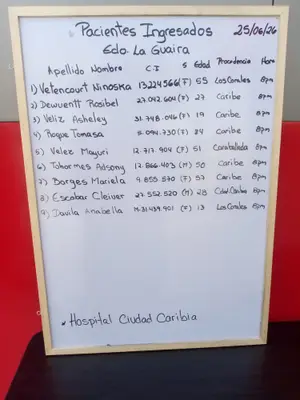 Pacientes Ingresados 25/06/26
Edo. La Guaira
Apellido Nombre C.I S Edad Procedencia Hora
1) Vetencourt Ninoska 13.224.566 (F) 55 Los Corales 8pm
2) Dewventt Rosibel 27.042.604 (F) 27 Caribe 8pm
3) Veliz Asheley 31.748.046 (F) 19 Caribe 8pm
4) Roque Tomasa 5.094.730 (F) 84 Caribe 8pm
5) Velez Mayuri 12.717.904 (F) 51 Caraballeda 8pm
6) Tohormes Adsony 12.866.403 (M) 50 Caribe 8pm
7) Borges Mariela 9.855.570 (F) 57 Caribe 8pm
8) Escobar Cleiver 27.552.520 (M) 28 Cdad. Caribia 8pm
9) Davila Anabella 31.439.901 (F) 13 Los Corales 8pm
Hospital Ciudad Caribia